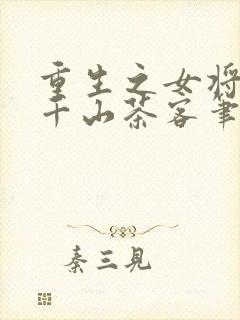 重生之女将
千山茶客笔
秦三見